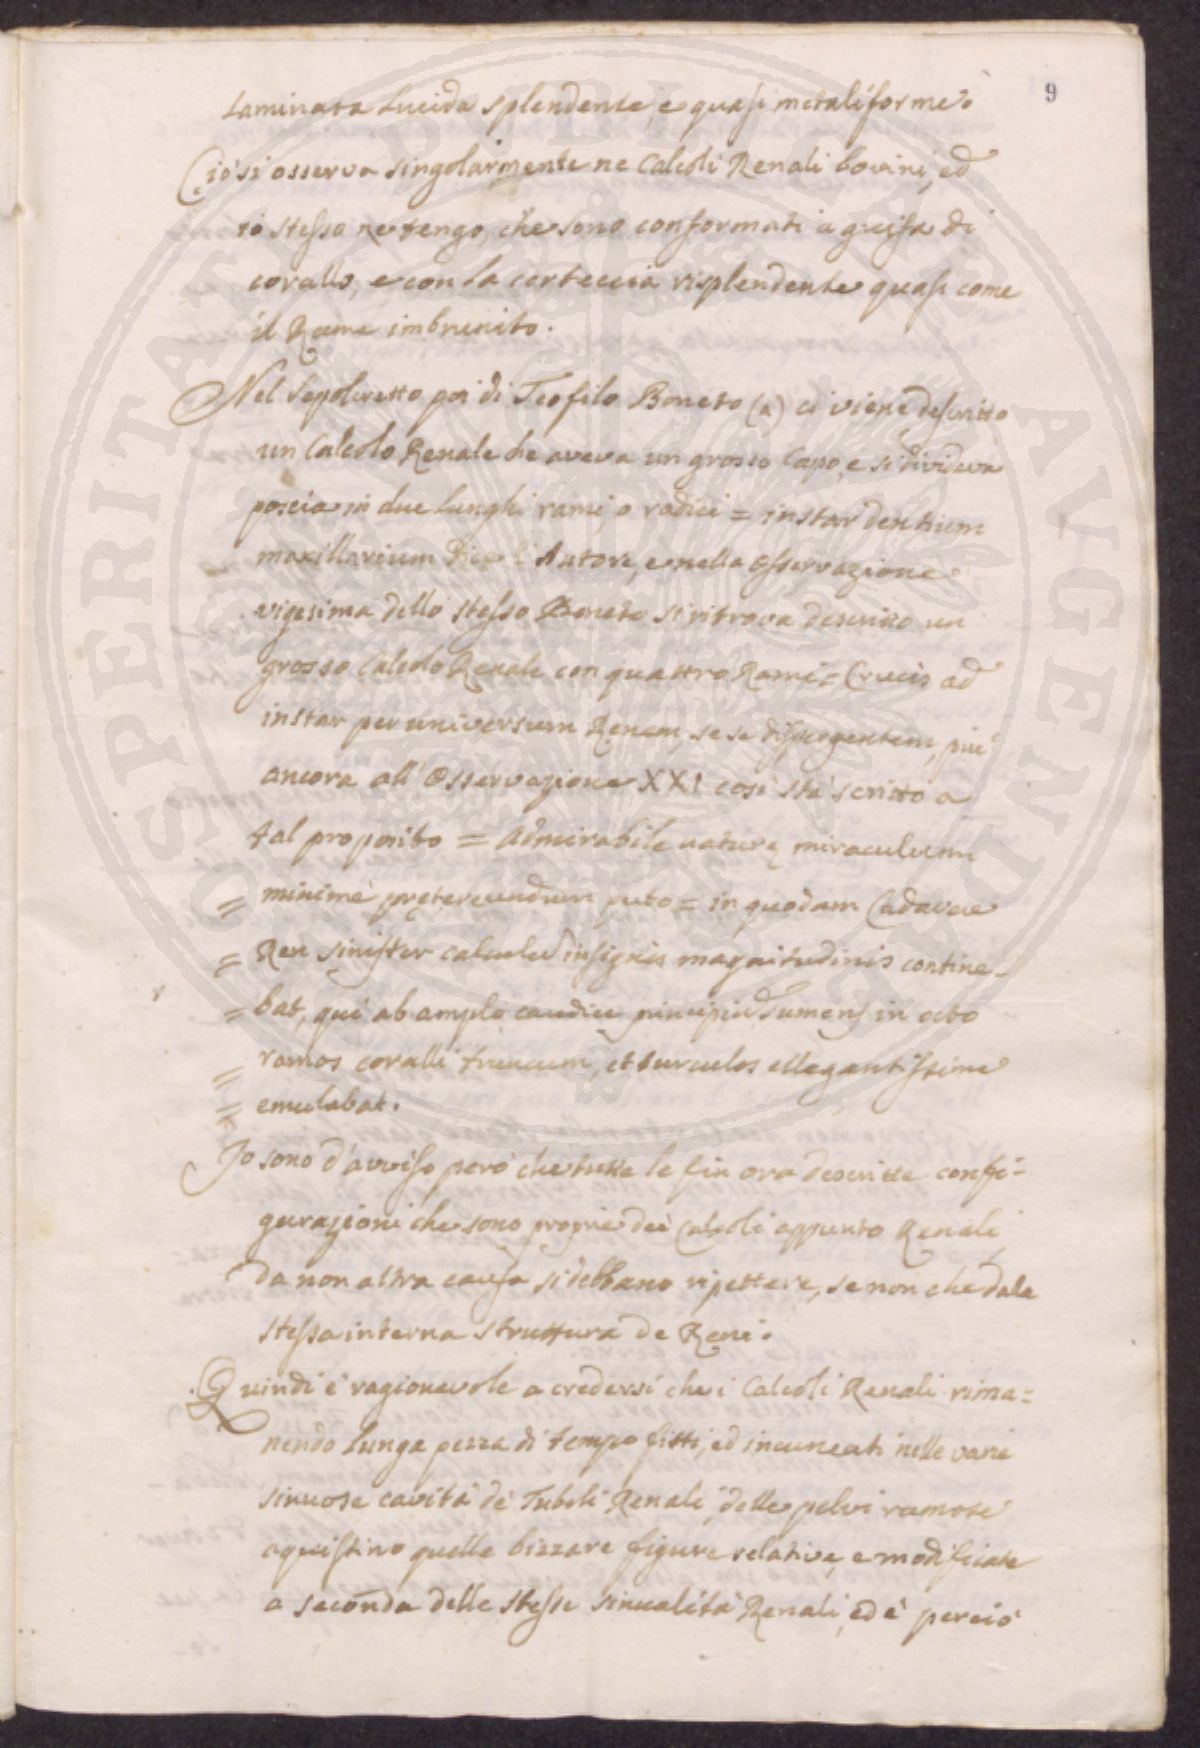 9
Laminata Lucida splendente, e quasi metaliforme.
Ciò si osserva singolarmente ne Calcoli Renali bovini, ed
io stesso ne tengo, che sono conformati a guisa di
corallo, e con la corteccia risplendente quasi come
il Rame imbrunito.
Nel Sepolcretto poi di Teofilo Boneto (a) ci viene descritto
un Calcolo Renale che aveva un grosso Capo, e si divideva
poscia in due lunghi rami, o radici = instar dentium
maxillarium dice l'Autore, e nella Osservazione
vigesima dello stesso Boneto si ritrova descritto un
grosso Calcolo Renale con quattro Rami = Crucis ad
instar per universum Renem, se se dispergentem, più
ancora all'Osservazione XXI così stà scritto a
tal proposito = Admirabile naturę miraculum
= minimè prętereundum puto = in quodam Cadavere
= Ren sinister calculu insignis magnitudinis contine-
= bat, qui ab amplo caudice principiu sumens in octo
= ramos coralli truncum, et surculos ellegantissime
= emulabat.
Io sono d'avviso però che tutte le fin ora descritte confi-
gurazioni che sono proprie dei Calcoli appunto Renali,
da non altra causa si debbano ripettere, se non che dala
stessa interna struttura de Reni.
Quindi è ragionevole a credersi che i Calcoli Renali rima=
nendo lunga pezza di tempo fitti, ed incuneati nelle varie
sinuose cavità de' Tuboli Renali, delle pelvi ramose
aquistino quelle bizzare figure relative, e modificate
a seconda delle stesse sinualità Renali, ed è perciò
SPERITATI PUBLICAE AUGENDAE